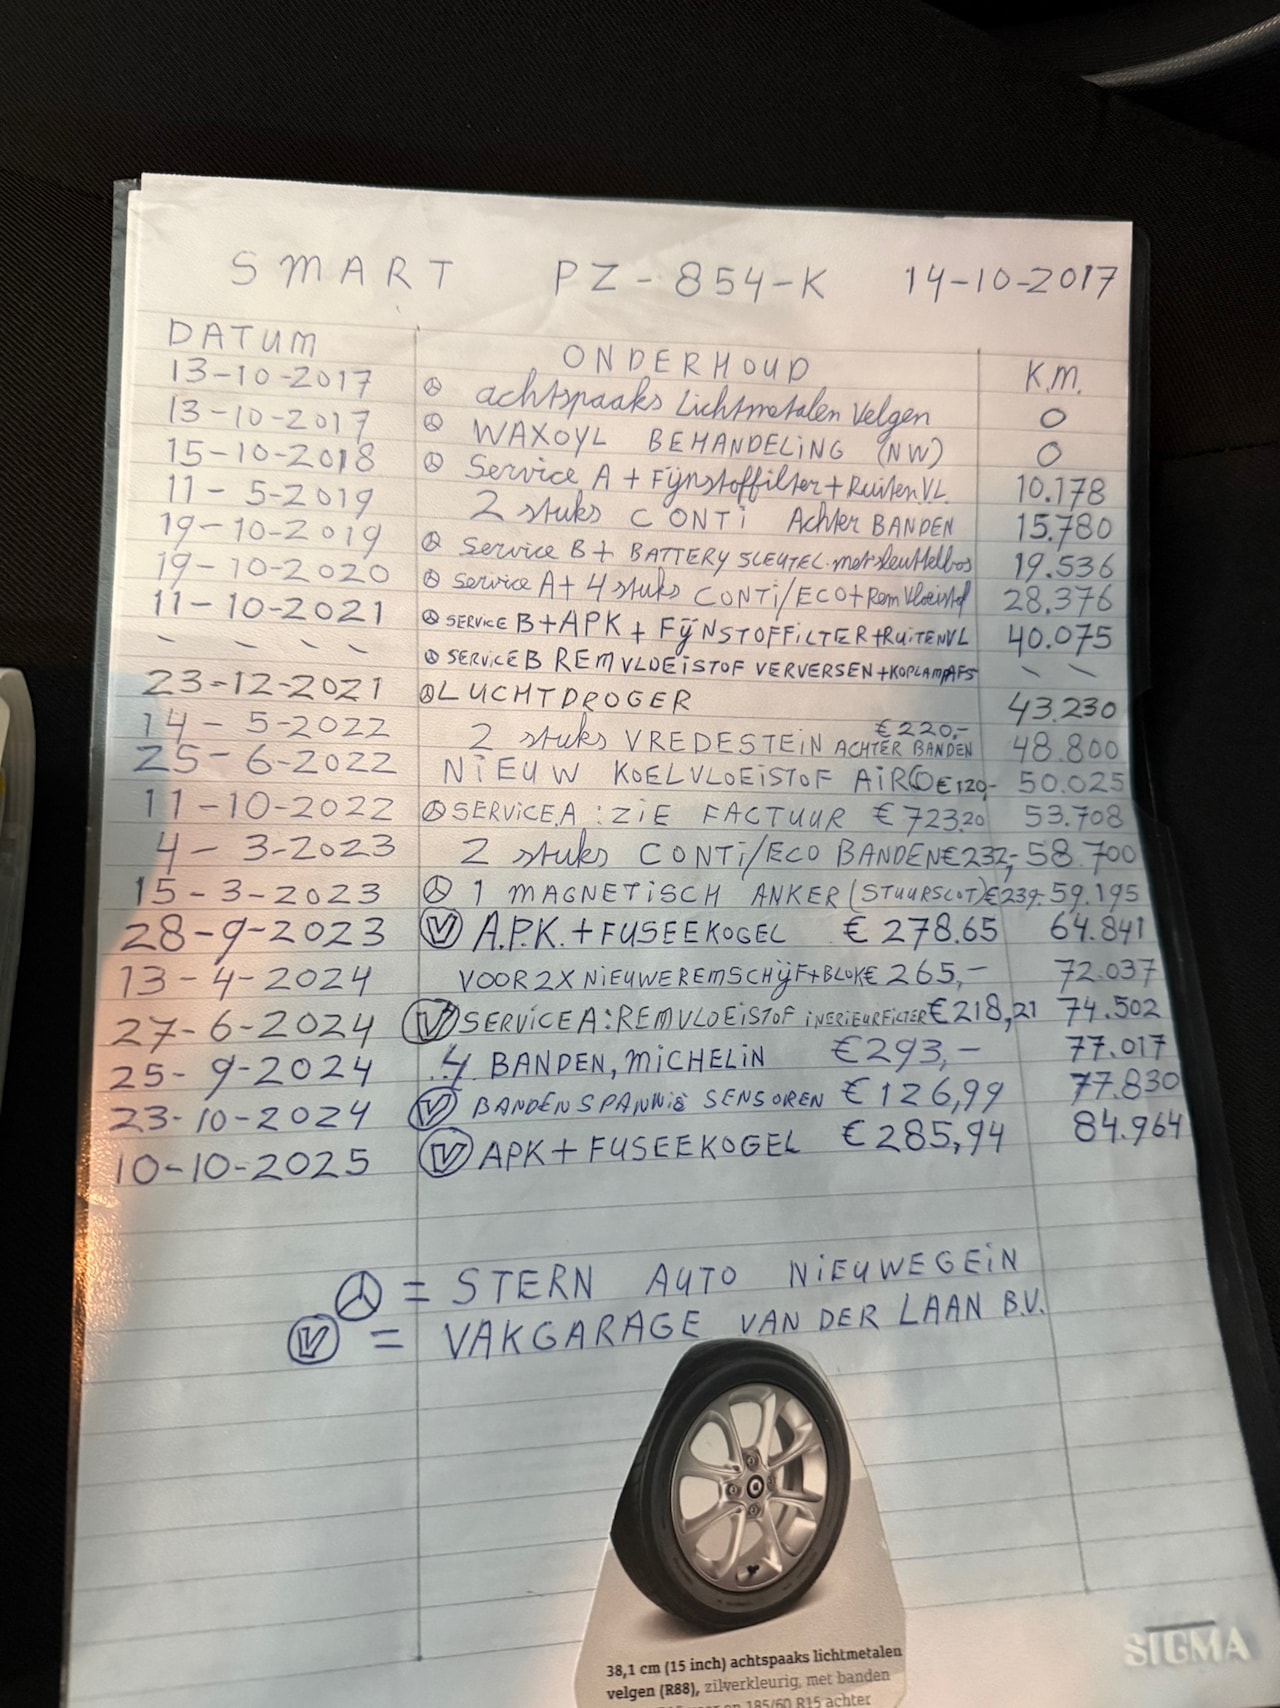 SMART PZ-854-K 14-10-2017
DATUM ONDERHOUD K.M.
13-10-2017 achtspaaks Lichtmetalen Velgen 0
13-10-2017 WAXOYL BEHANDELING (NW) 0
15-10-2018 Service A + Fijnstoffilter + RuitenVL 10.178
11-5-2019 2 stuks CONTI Achter BANDEN 15.780
19-10-2019 Service B + BATTERY SLEUTEL met sleutelbos 19.536
19-10-2020 Service A + 4 stuks CONTI/ECO + Rem Vloeistof 28.376
11-10-2021 SERVICE B + APK + FIJNSTOFFILTER + RUITENVL 40.075
\ \ \ SERVICE B REMVLOEISTOF VERVERSEN + KOPLAMPAFS \ \
23-12-2021 LUCHTDROGER 43.230
14-5-2022 2 stuks VREDESTEIN ACHTER BANDEN € 220,- 48.800
25-6-2022 NIEUW KOELVLOEISTOF AIRCO € 120,- 50.025
11-10-2022 SERVICE A : ZIE FACTUUR € 723.20 53.708
4-3-2023 2 stuks CONTI/ECO BANDEN € 232,- 58.700
15-3-2023 1 MAGNETISCH ANKER (STUURSLOT) € 239,- 59.195
28-9-2023 V A.P.K. + FUSEEKOGEL € 278.65 64.841
13-4-2024 VOOR 2X NIEUWE REMSCHIJF + BLOK € 265,- 72.037
27-6-2024 V SERVICE A: REMVLOEISTOF INERIEURFILTER € 218,21 74.502
25-9-2024 4 BANDEN, MICHELIN € 293,- 77.017
23-10-2024 V BANDENSPANNIG SENSOREN € 126,99 77.830
10-10-2025 V APK + FUSEEKOGEL € 285,94 84.964
= STERN AUTO NIEUWEGEIN
V = VAKGARAGE VAN DER LAAN B.V.
38,1 cm (15 inch) achtspaaks lichtmetalen
velgen (R88), zilverkleurig, met banden
185/60 R15 achter
SIGMA